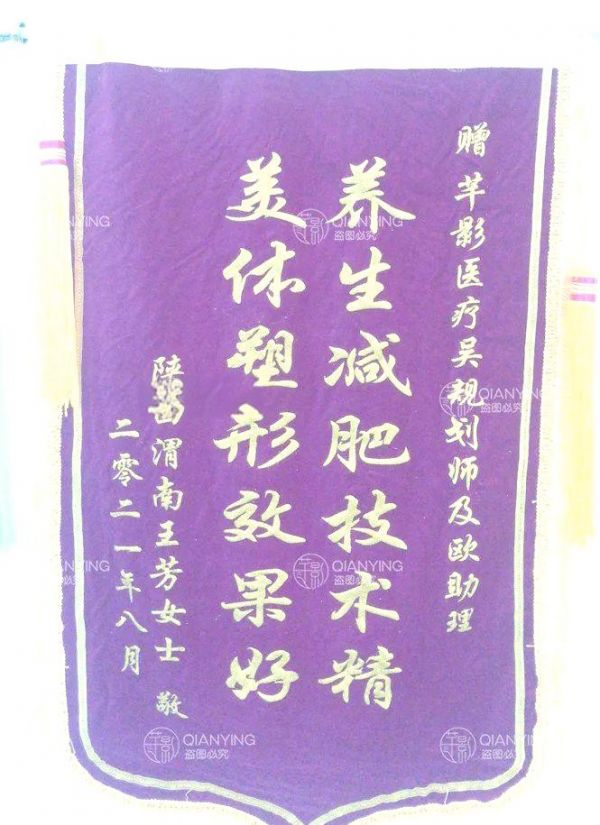 赠芊影医疗吴规划师及欧助理
养生减肥技术精
美体塑形效果好
陕西渭南王芳女士 敬
二零二一年八月
QIANYING
盗图必究
QIANYING
盗图必究
QIANYING
盗图必究
QIANYING
盗图必究
QIANYING
盗图必究
QIANYING
盗图必究
QIANYING
盗图必究